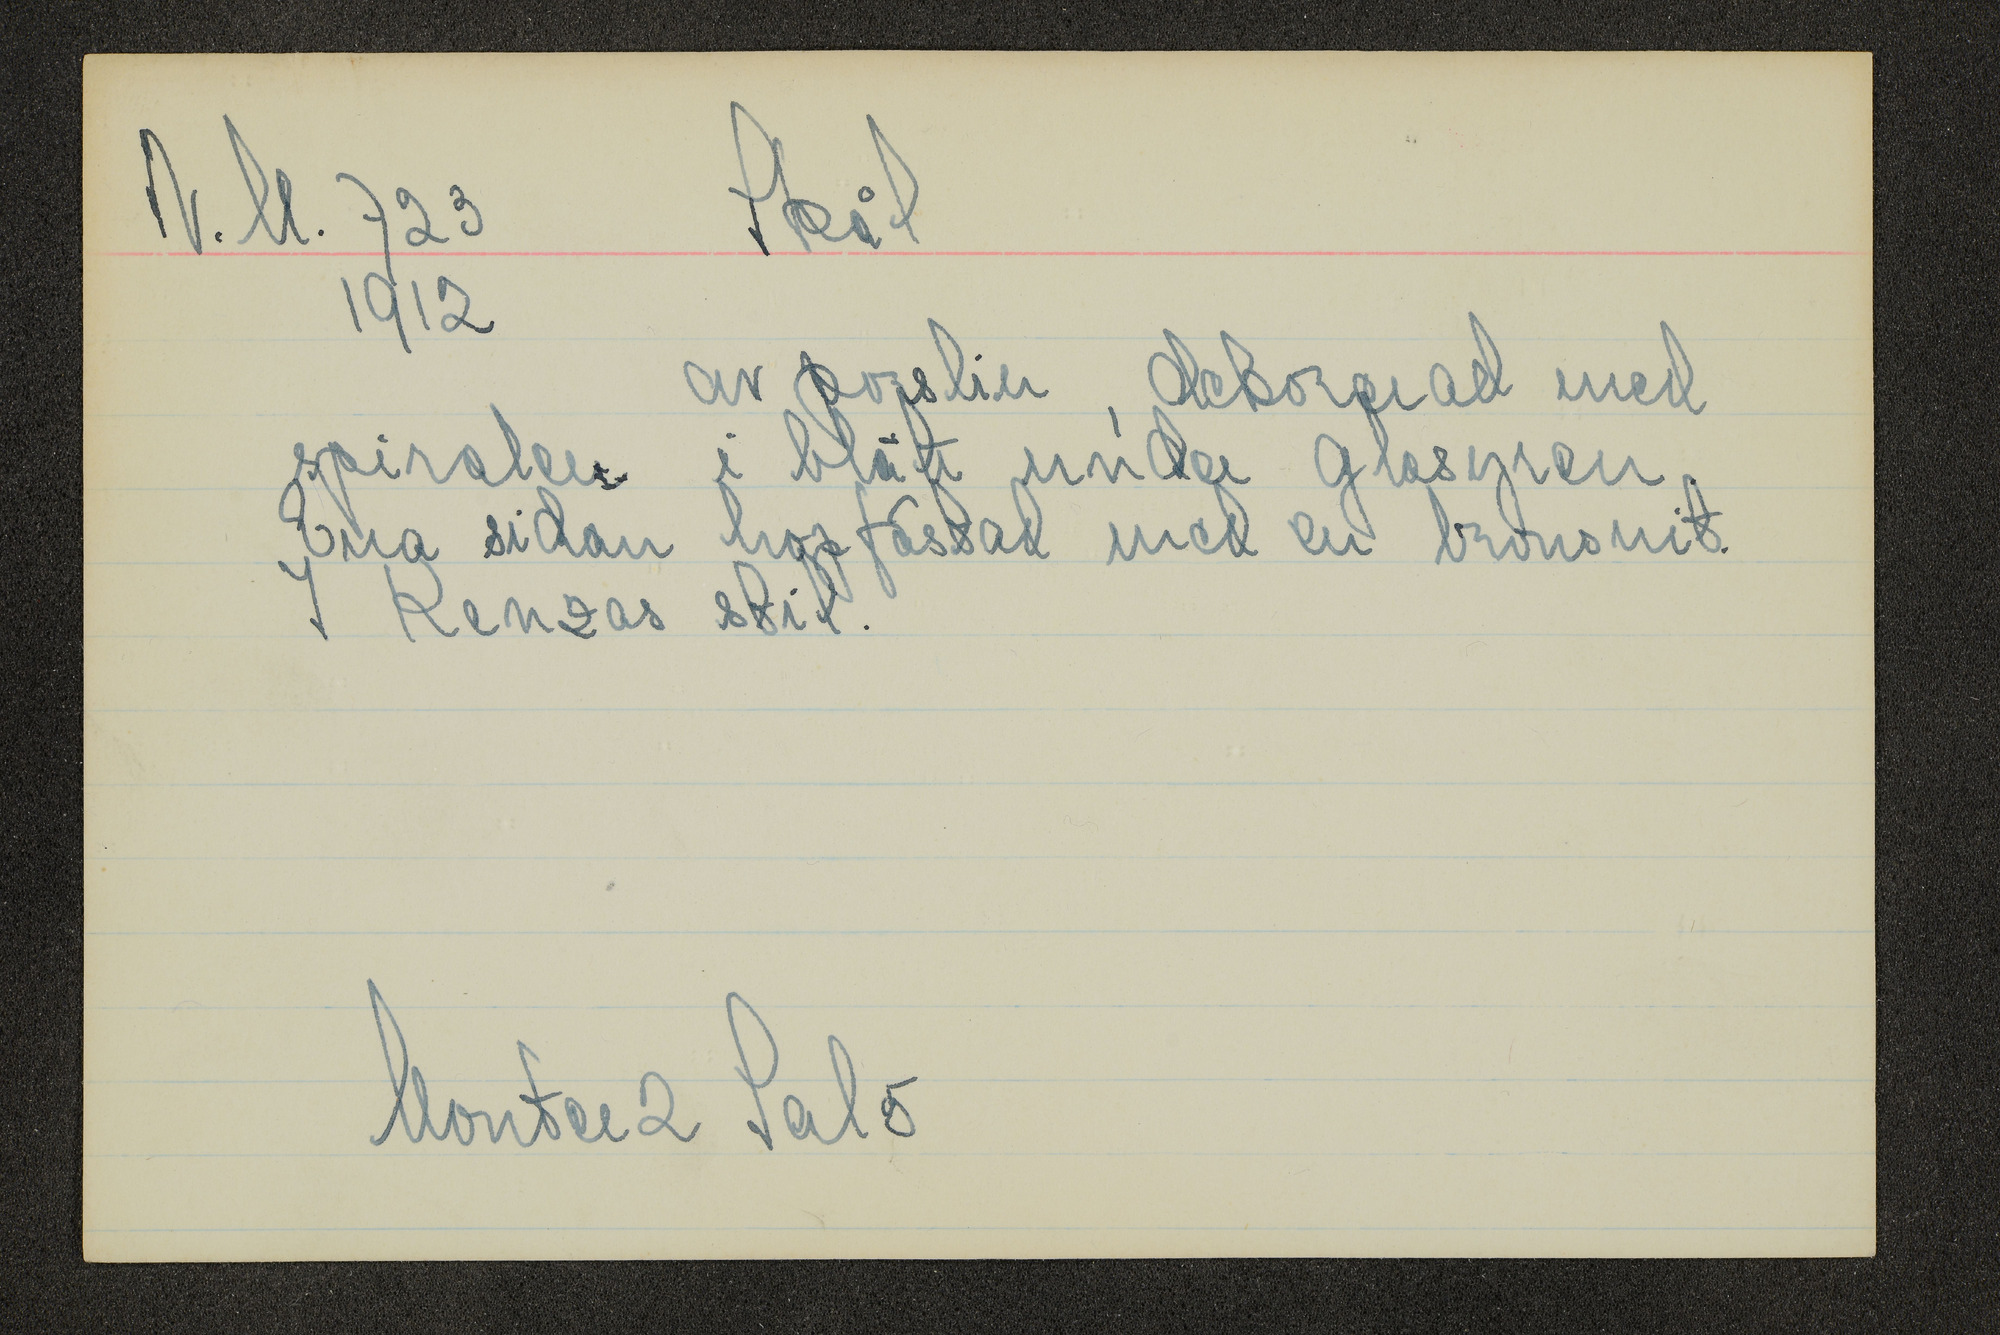 N.M. 723 Skål
1912
av porslin, dekorerad med
spiraler i blått under glasyren.
Ena sidan hopfästad med en bronsnit.
I Kenzas stil.
Monter 2 Sal 5